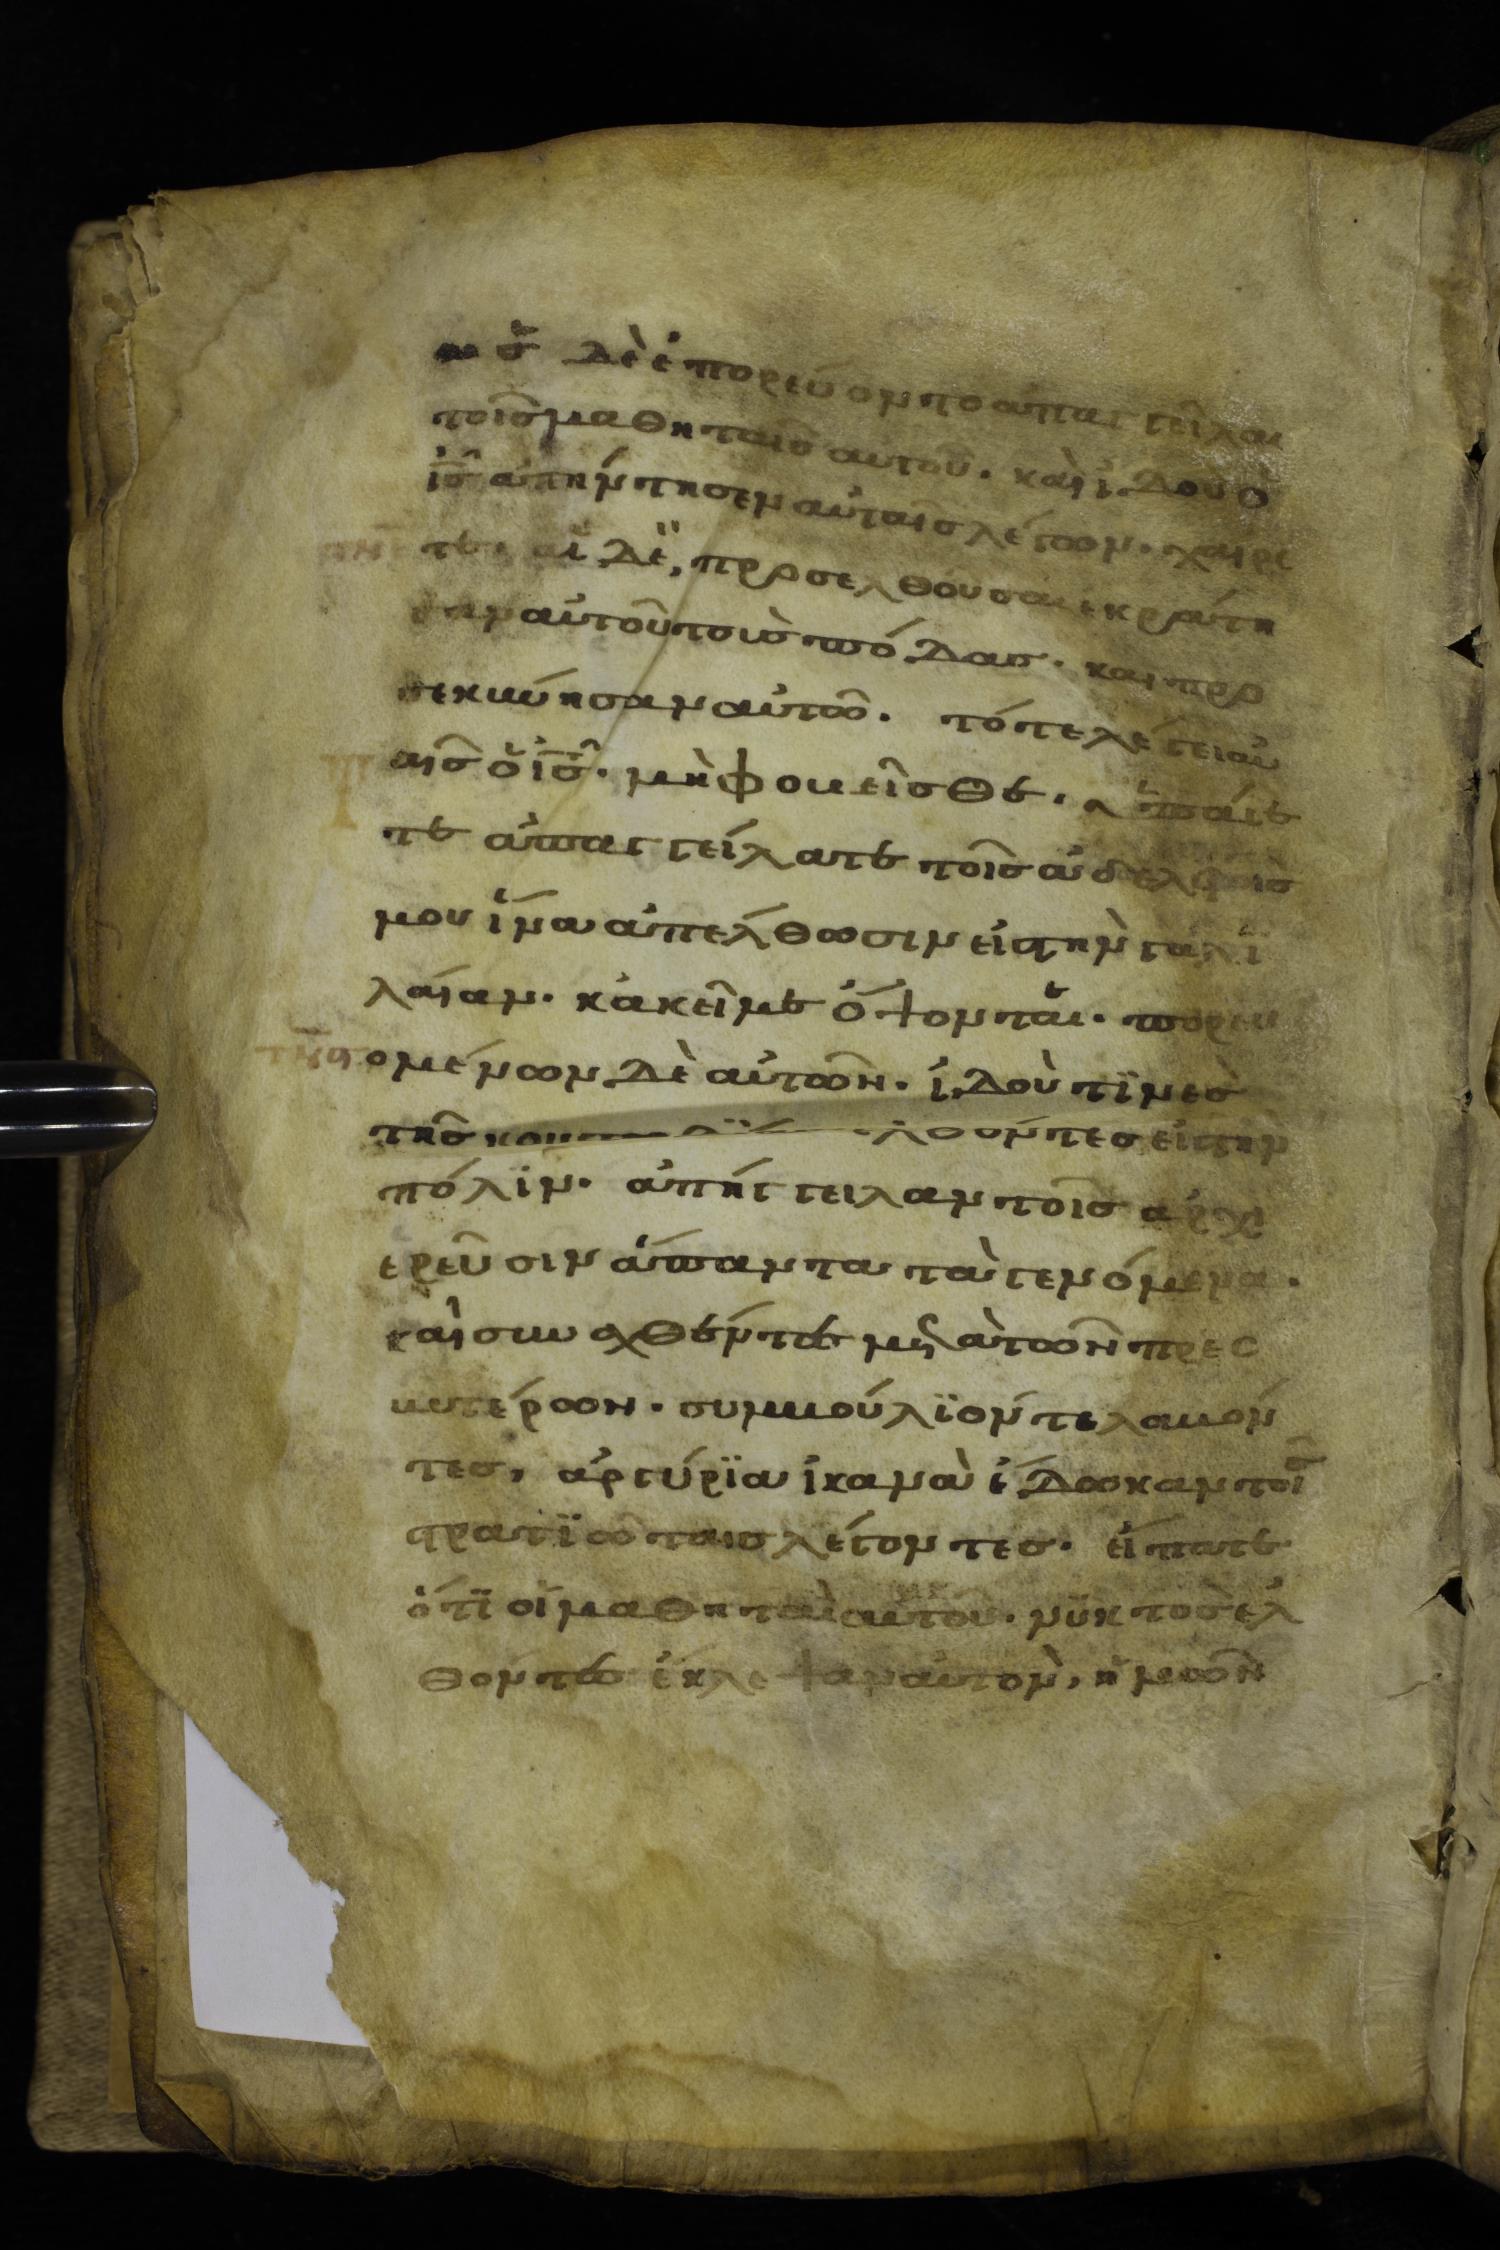 ὡς δὲ ἐπορεύοντο ἀπαγγεῖλαι
τοῖς μαθηταῖς αὐτοῦ. καὶ ἰδοὺ ὁ
ις ἀπήντησεν αὐταῖς λέγων. χαίρε
τε. αἱ δὲ, προσελθοῦσαι ἐκράτη
σαν αὐτοῦ τοὺς πόδας. καὶ προ
σεκύνησαν αὐτῶ. τότε λέγει αὐ
αῖς ὁ ις. μὴ φοβεῖσθε. ὑπάγε
τε ἀπαγγείλατε τοῖς ἀδελφοῖς
μου ἵνα ἀπέλθωσιν εἰς τὴν γαλι
λαίαν. κἀκεῖ με ὄψονται. πορευ
ομένων δὲ αὐτῶν. ἰδού τϊνες
τῆς ἐλθόντες εἰς τὴν
πόλϊν. ἀπήγγειλαν τοῖς ἀρχι
ερεῦσιν ἅπαντα τὰ γενόμενα.
καὶ συναχθέντες μετὰ τῶν πρεσ
βυτέρων. συμβούλϊόν τε λαβόν
τες, ἀργύρϊα ἱκανὰ ἔδωκαν τοῖς
στρατϊώταις λέγοντες. εἴπατε
ὅτϊ οἱ μαθηταὶ αὐτοῦ. νϋκτὸς ἐλ
θόντες ἔκλεψαν αὐτὸν, ἡμῶν